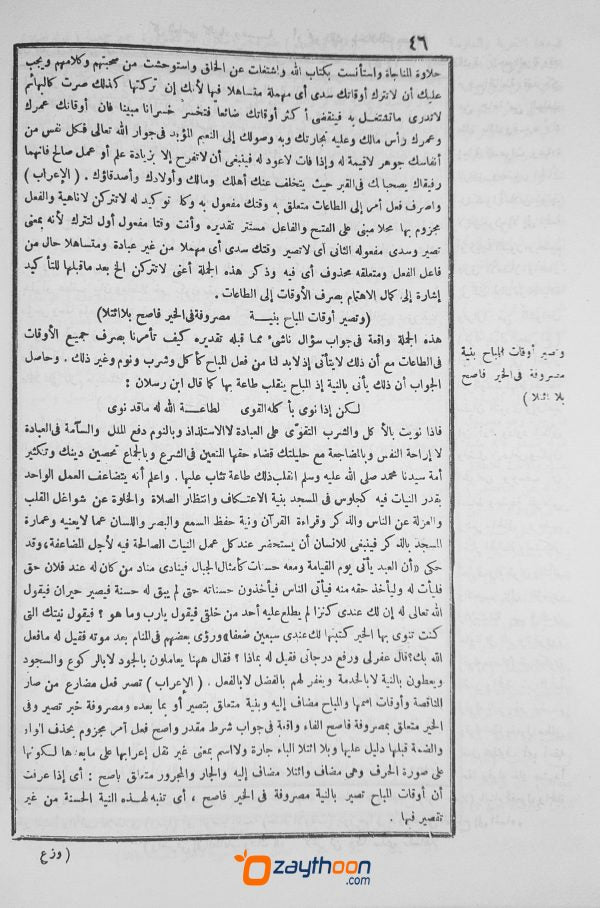 ٤٦
حلاوة المناجاة واستأنست بكتاب الله واشتغلت عن الخلق واستوحشت من صحبتهم وكلامهم ويجب
عليك أن لا تترك أوقاتك سدى أى مهملة متساهلا فيها لأنك إن تركتها كذلك صرت كالبهائم
لا تدرى ما تشتغل به فينقضى أكثر أوقاتك ضائعا فتخسر خسرانا مبينا فان أوقاتك عمرك
وعمرك رأس مالك وعليه تجارتك وبه وصولك إلى النعيم المؤبد فى جوار الله تعالى فكل نفس من
أنفاسك جوهر لاقيمة له وإذا فات لاعود له فينبغى أن لا تفرح إلا بزيادة علم أو عمل صالح فانهما
رفيقاك يصحبانك فى القبر حيث يتخلف عنك أهلك ومالك وأولادك وأصدقاؤك . ( الإعراب )
واصرف فعل أمر إلى الطاعات متعلق به وقتك مفعول به وكلا توكيد له لا تتركن لا ناهية والفعل
مجزوم بها محلا مبنى على الفتح والفاعل مستتر تقديره وأنت وقتا مفعول أول لتترك لأنه بمعنى
تصير وسدى مفعوله الثانى أى لا تصير وقتك سدى أى مهملا من غير عبادة ومتساهلا حال من
فاعل الفعل ومتعلقه محذوف أى فيه وذكر هذه الجملة أعنى لا تتركن الخ بعد ماقبلها للتأكيد
إشارة إلى كمال الاهتمام بصرف الأوقات إلى الطاعات .
(وتصير أوقات المباح بنية مصروفة فى الخير فاصح بلا ائتلا)
هذه الجملة واقعة فى جواب سؤال ناشئ مما قبله تقديره كيف تأمرنا بصرف جميع الأوقات
فى الطاعات مع أن ذلك لا يتأتى إذ لابد لنا من فعل المباح كأكل وشرب ونوم وغير ذلك . وحاصل
الجواب أن ذلك يأتى بالنية إذ المباح ينقلب طاعة بها كما قال ابن رسلان :
لكن إذا نوى بأكله القوى لطاعة الله له ماقد نوى
فاذا نويت بالأكل والشرب التقوى على العبادة لا الاستلذاذ وبالنوم دفع الملل والسآمة فى العبادة
لا إراحة النفس وبالمضاجعة مع حليلتك قضاء حقها المتعين فى الشرع وبالجماع تحصين دينك وتكثير
أمة سيدنا محمد صلى الله عليه وسلم انقلب ذلك طاعة تثاب عليها . واعلم أنه يتضاعف العمل الواحد
بقدر النيات فيه كجلوس فى المسجد بنية الاعتكاف وانتظار الصلاة والخلوة عن شواغل القلب
والعزلة عن الناس والذكر وقراءة القرآن ونية حفظ السمع والبصر واللسان عما لا يعنيه وعمارة
المسجد بالذكر فينبغى للانسان أن يستحضر عند كل عمل النيات الصالحة فيه لأجل المضاعفة، وقد
حكى «أن العبد يأتى يوم القيامة ومعه حسنات كأمثال الجبال فينادى مناد من كان له عند فلان حق
فليأت له وليأخذ حقه منه فيأتى الناس فيأخذون حسناته حتى لم يبق له حسنة فيصير حيران فيقول
الله تعالى له إن لك عندى كنزا لم يطلع عليه أحد من خلقى فيقول يارب وما هو ؟ فيقول نيتك التى
كنت تنوى بها الخير كتبتها لك عندى سبعين ضعفا» ورؤى بعضهم فى المنام بعد موته فقيل له مافعل
الله بك؟ قال غفر لى ورفع درجاتى فقيل له بماذا ؟ فقال ههنا يعاملون بالجود لا بالركوع والسجود
ويعطون بالنية لا بالخدمة ويغفر لهم بالفضل لا بالفعل . ( الإعراب ) تصير فعل مضارع من صار
الناقصة وأوقات اسمها والمباح مضاف إليه وبنية متعلق بتصير أو بما بعده ومصروفة خبر تصير وفى
الخير متعلق بمصروفة فاصح الفاء واقعة فى جواب شرط مقدر واصح فعل أمر مجزوم بحذف الواو
والضمة قبلها دليل عليها وبلا ائتلا الباء جارة ولا اسم بمعنى غير نقل إعرابها على مابعدها لكونها
على صورة الحرف وهى مضاف وائتلا مضاف إليه والجار والمجرور متعلق باصح : أى إذا عرفت
أن أوقات المباح تصير بالنية مصروفة فى الخير فاصح ، أى تنبه لهذه النية الحسنة من غير
تقصير فيها .
وتصير أوقات المباح بنية
مصروفة فى الخير فاصح
بلا ائتلا )
( وزع
ozaythoon
.com